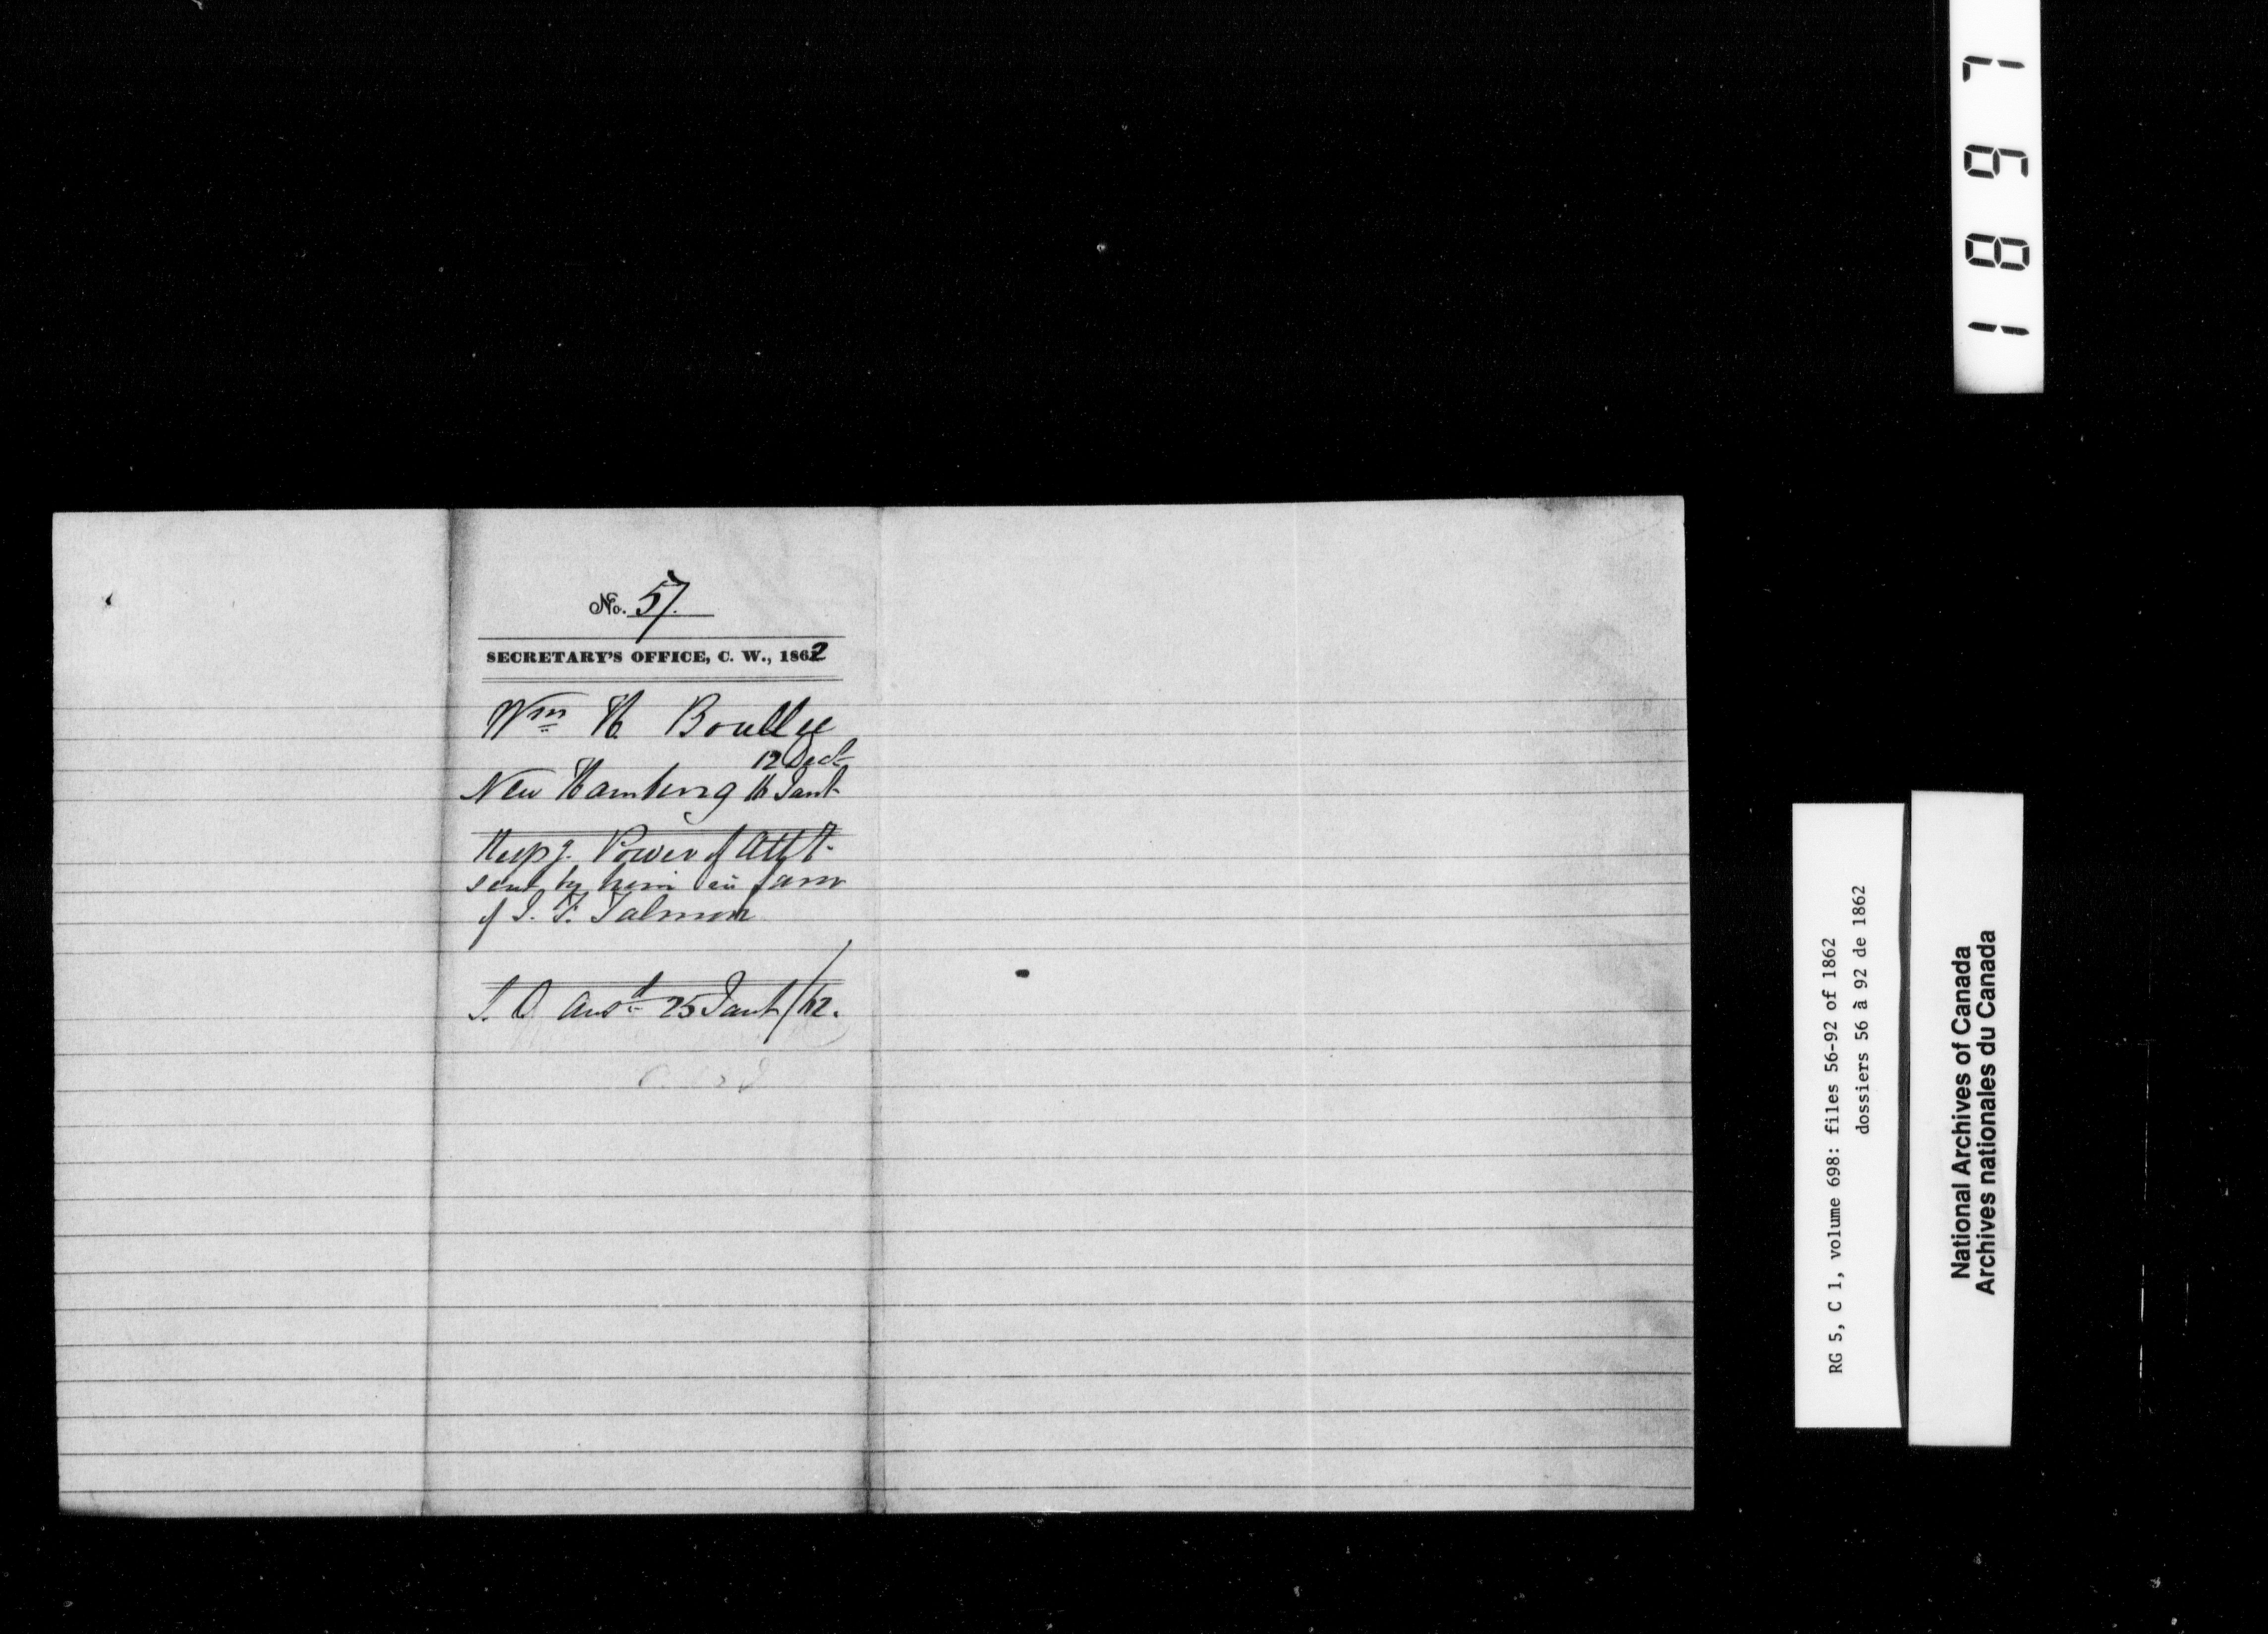 No. 57.
SECRETARY'S OFFICE, C. W., 1862
Wm H Boullee
12 Dect
New Hamburg 16 Jany
Respg. Power of Atty
sent by him in favr
of J. F. Salmon
Ansd 25 Jany/62.
1897
RG 5, C 1, volume 698: files 56-92 of 1862
dossiers 56 à 92 de 1862
National Archives of Canada
Archives nationales du Canada